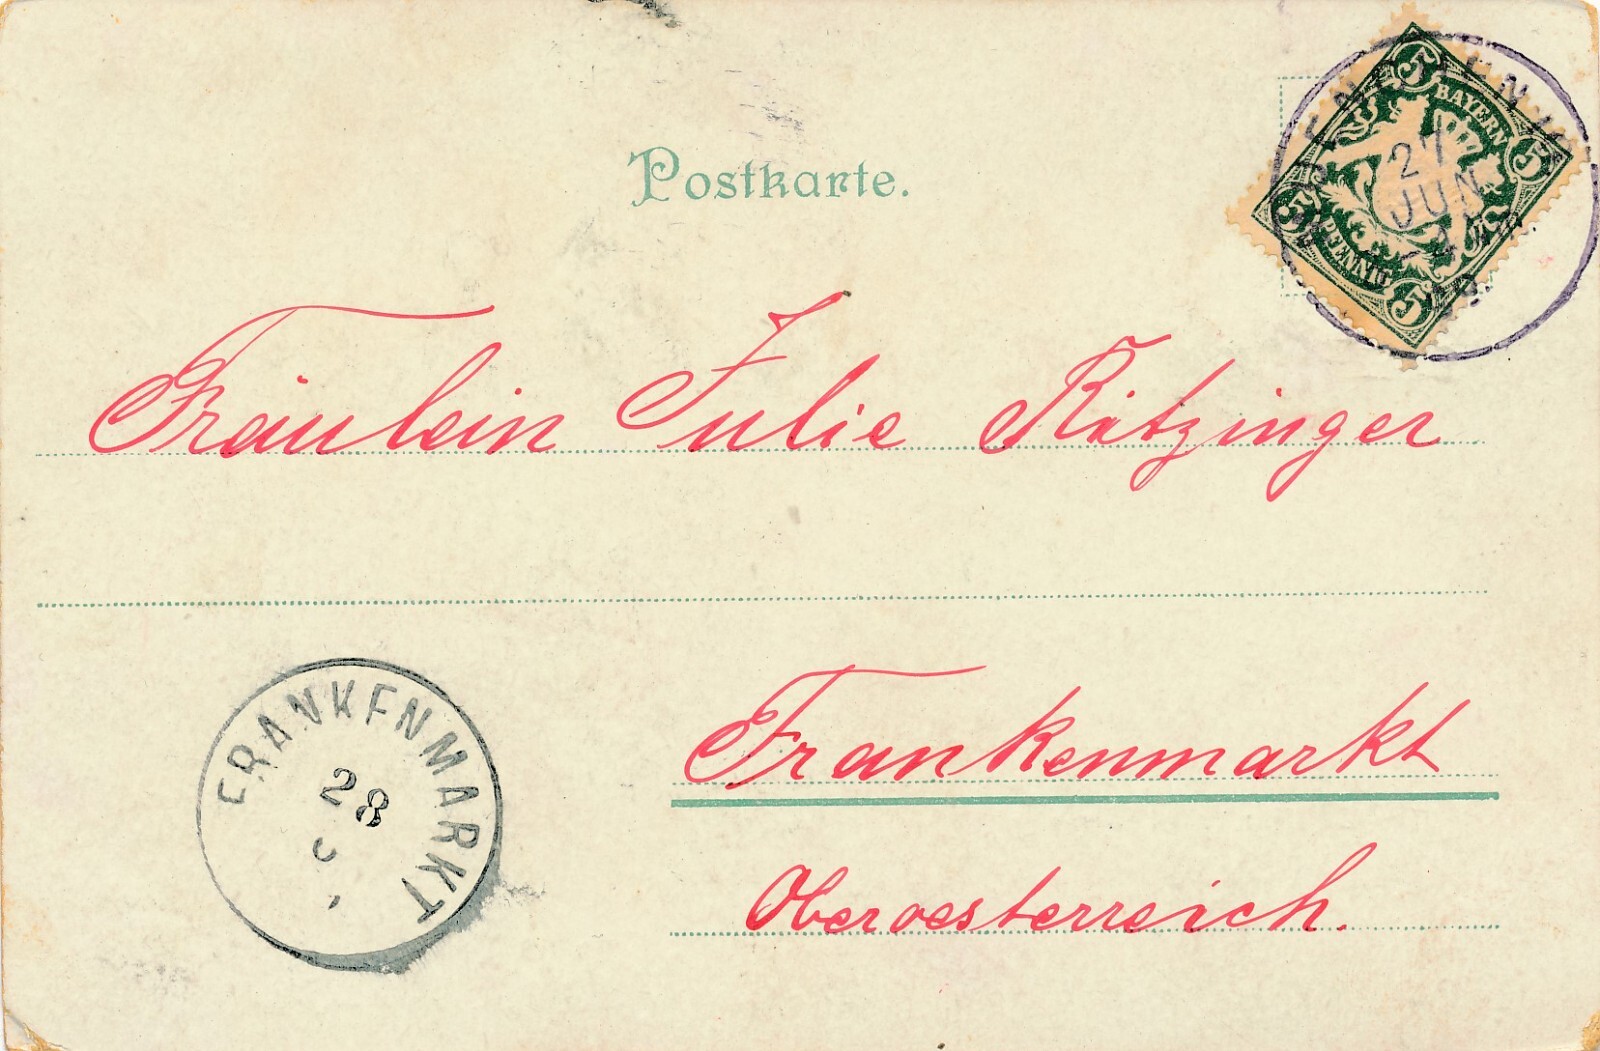 Postkarte.
5
BAYERN
5
5
PFENNIG
5
27
JUN
Fräulein Julie Ritzinger
Frankenmarkt
Oberoesterreich.
FRANKENMARKT
28